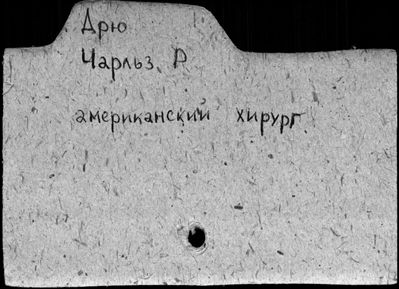 Дрю
Чарльз Р
американский хирург